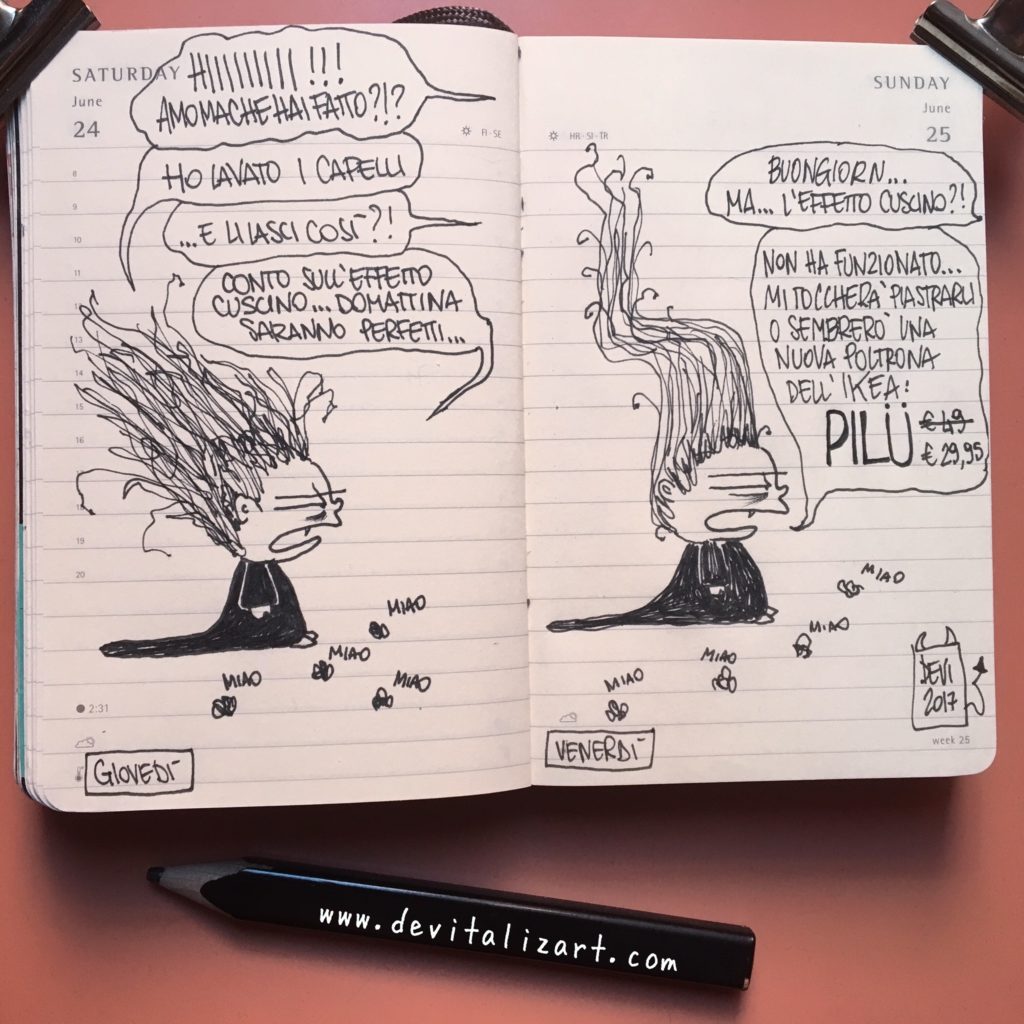 SATURDAY
June
24
FI - SE
HIIIIIIIII !!!
AMOMACHEHAIFATTO?!?
HO LAVATO I CAPELLI
...E LI LASCI COSÌ?!
CONTO SULL'EFFETTO
CUSCINO... DOMATTINA
SARANNO PERFETTI...
8
9
10
11
13
14
15
16
17
18
19
20
MIAO
MIAO
MIAO
MIAO
2:31
GIOVEDÌ
SUNDAY
June
25
HR - SI - TR
BUONGIORN...
MA... L'EFFETTO CUSCINO?!
NON HA FUNZIONATO...
MI TOCCHERÀ PIASTRARLI
O SEMBRERÒ UNA
NUOVA POLTRONA
DELL'IKEA:
PILÜ € 49
€ 29,95
MIAO
MIAO
MIAO
MIAO
DEVI
2017
week 25
VENERDÌ
www.devitalizart.com